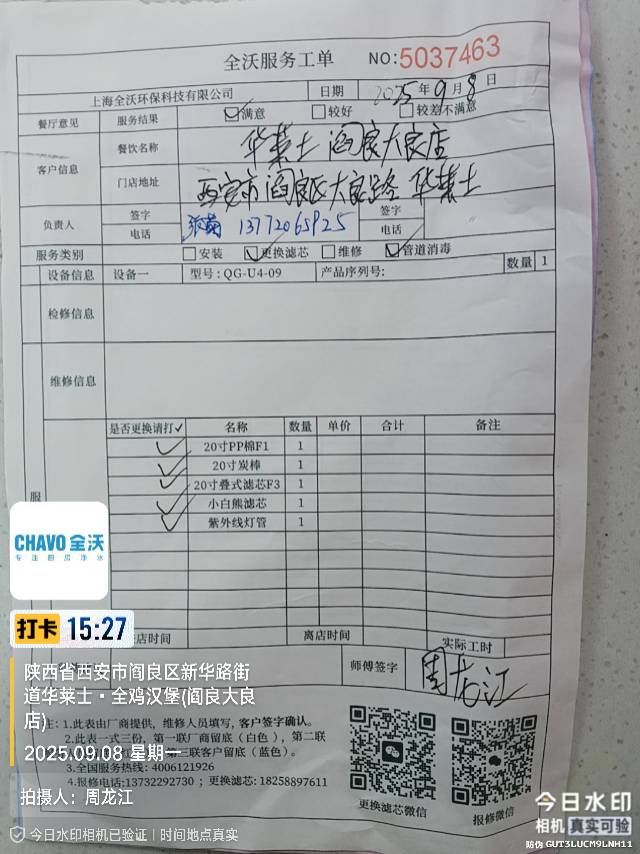 全沃服务工单 NO:5037463
上海全沃环保科技有限公司 日期 2025年9月8日
餐厅意见 服务结果 ☑满意 □较好 □较差不满意
客户信息 餐饮名称 华莱士阎良大良店
门店地址 西安市阎良区大良路华莱士
负责人 签字 签字
电话 13772065925 电话
服务类别 □安装 ☑更换滤芯 □维修 ☑管道消毒
设备信息 设备一 型号:QG-U4-09 产品序列号: 数量 1
检修信息
维修信息
是否更换请打✓ 名称 数量 单价 合计 备注
✓ 20寸PP棉F1 1
✓ 20寸炭棒 1
✓ 20寸叠式滤芯F3 1
✓ 小白熊滤芯 1
✓ 紫外线灯管 1
服
CHAVO 全沃
专注厨房净水
打卡 15:27
店时间 离店时间 实际工时
师傅签字 周龙江
陕西省西安市阎良区新华路街
道华莱士·全鸡汉堡(阎良大良
店)
2025.09.08 星期一
拍摄人：周龙江
注:1.此表由厂商提供，维修人员填写，客户签字确认。
2.此表一式三份，第一联厂商留底（白色），第二联
三联客户留底（蓝色）。
3.全国服务热线:4006121926
4.报修电话:13732292730；更换滤芯:18258897611
更换滤芯微信 报修微信
今日水印
相机 真实可验
今日水印相机已验证 | 时间地点真实
防伪 GUT3LUCM9LNH11